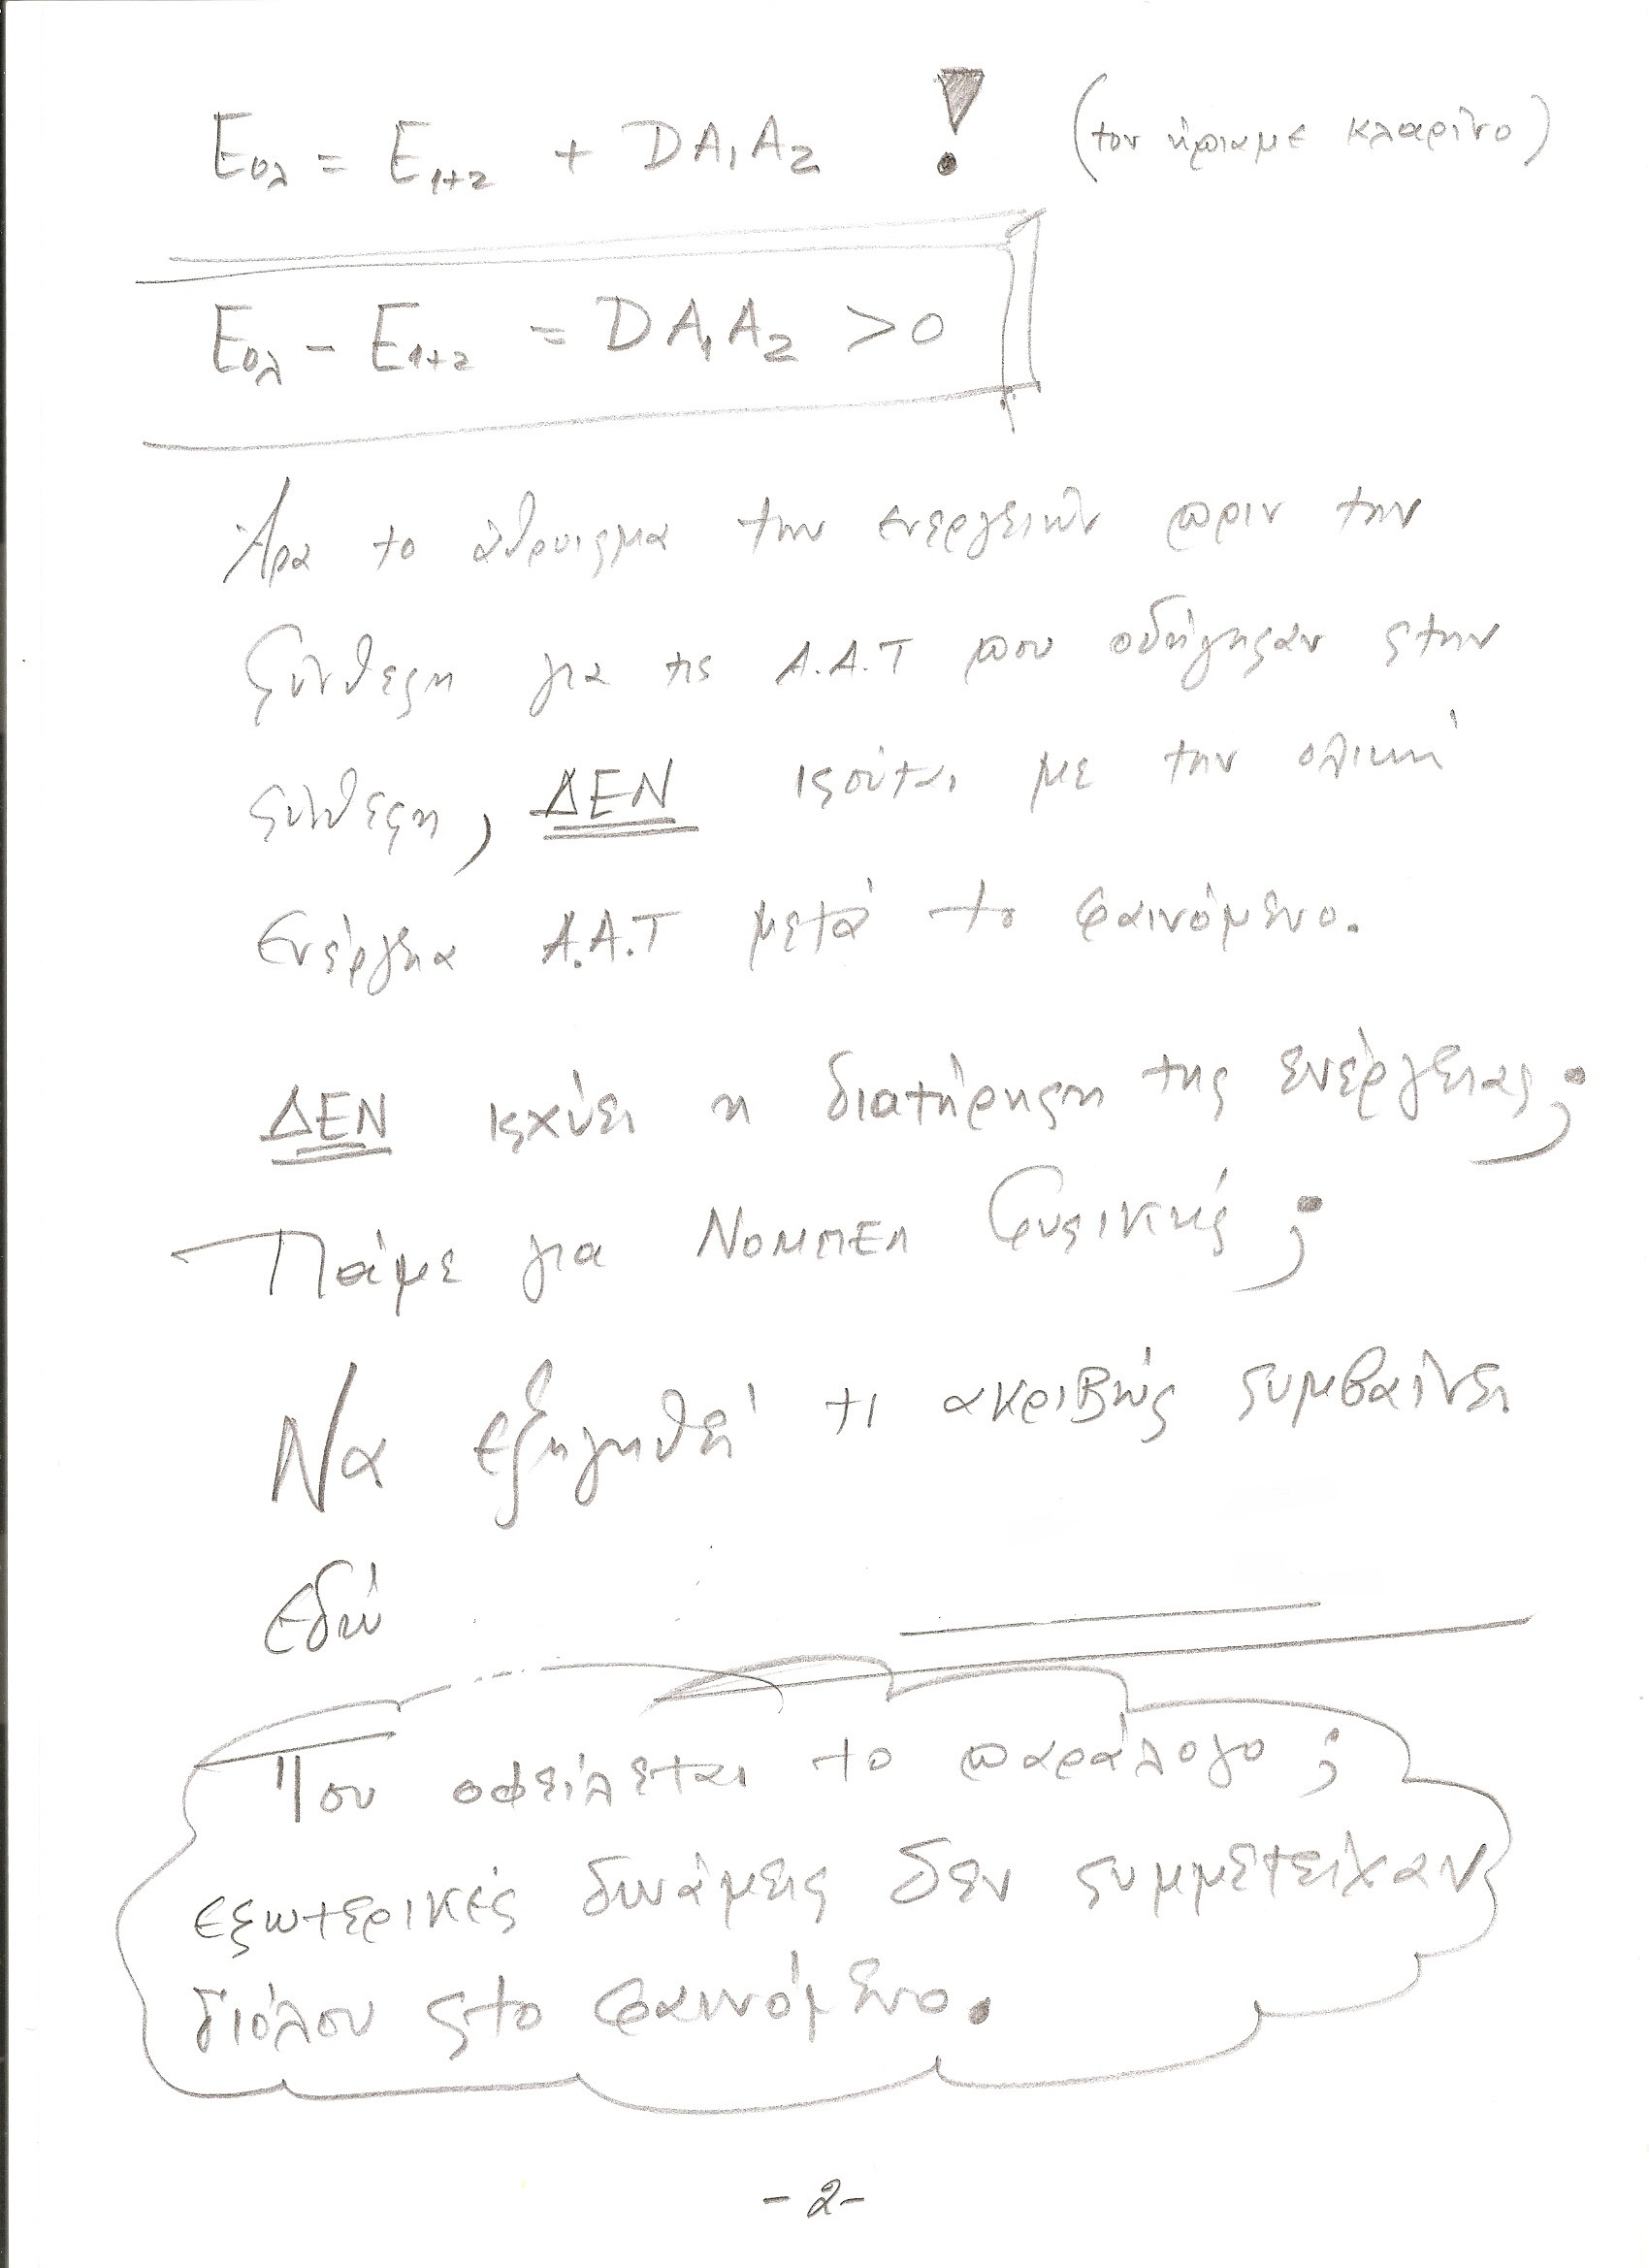 Εολ = Ε1+2 + DA1A2 ! (τον ήπιαμε κλαρίνο)
Εολ - Ε1+2 = DA1A2 >0
Άρα το άθροισμα των ενεργειών πριν την
σύνθεση για τις Α.Α.Τ που οδήγησαν στην
σύνθεση, ΔΕΝ ισούται με την ολική
ενέργεια Α.Α.Τ μετά το φαινόμενο.
ΔΕΝ ισχύει η διατήρηση της ενέργειας;
Πάμε για ΝΟΜΠΕΛ Φυσικής;
Να εξηγηθεί τι ακριβώς συμβαίνει
εδώ
Που οφείλεται το παράλογο;
εξωτερικές δυνάμεις δεν συμμετείχαν
διόλου στο φαινόμενο.
-2-